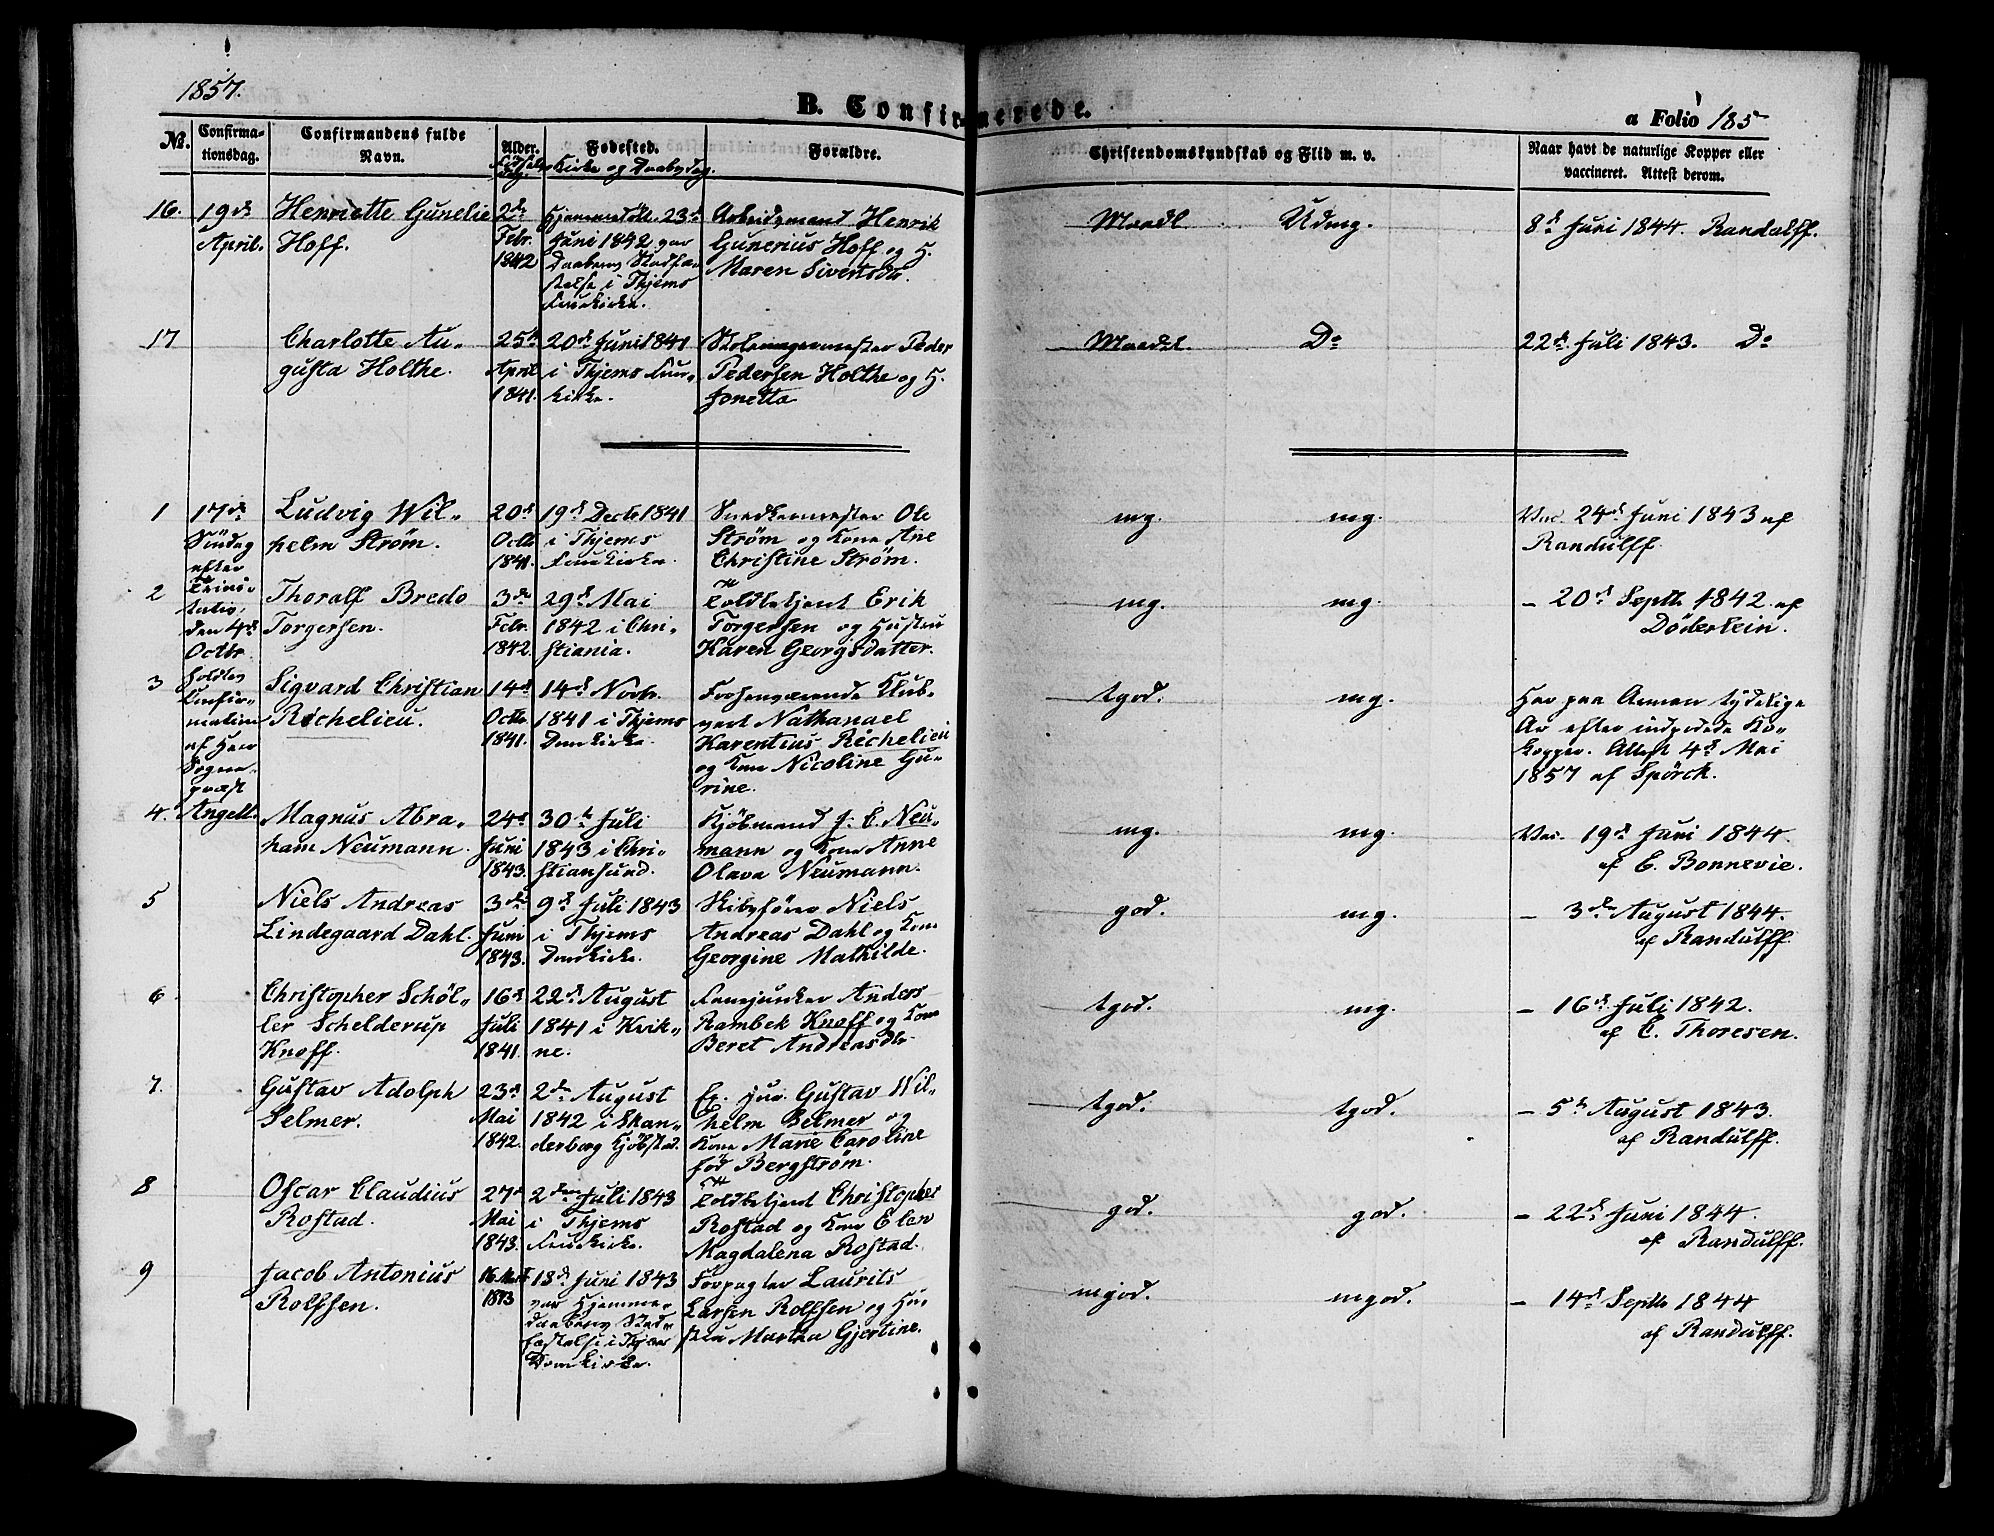 1857.
B. Confirmerede.
a Folio 185
No.
Confirma-
tionsdag.
Confirmandens fulde
Navn.
Alder.
Fødested.
Kirke og Daabsdag.
Forældre.
Christendomskundskab og Flid m. v.
Naar havt de naturlige Kopper eller
vaccineret. Attest derom.
16.
19de
April.
Henriette Gunelie
Hoff.
2de
Febr.
1842
Hjemmedøbt 23de
Juni 1842 var
Daabens Stadfæ-
stelse i Thjems
Fruekirke.
Arbeidsmand Henrik
Gunerius Hoff og H.
Maren Sivertsdr.
Maadl
Udmg.
8de Juni 1844. Randulff.
17
Charlotte Au-
gusta Holthe.
25de
April
1841.
20de Juni 1841
i Thjems Frue-
kirke.
Peder
Pedersen Holthe og H.
Jonetta
Maadel.
Do
22de Juli 1843. Do
1
17de
Søndag
efter
Trini-
tatis,
den 4de
Octbr.
holdtes
Confir-
mation
af Herr
Sogne-
præst
Angell.
Ludvig Wil-
helm Strøm.
20de
Octb
1841.
19de Decbr 1841
i Thjems
Fruekirke.
Snedkermester Ole
Strøm og Kone Ane
Christine Strøm.
mg.
mg.
Vac. 24de Juni 1843 af
Randulff.
2
Thoralf Bredo
Torgersen.
3de
Febr.
1842.
29de Mai
1842 i Chri-
stiania.
Toldbetjent Erik
Torgersen og Hustru
Karen Georgsdatter.
mg.
mg.
- 20de Septb. 1842 af
Döderlein.
3
Sigvard Christian
Richelieu.
14de
Octb.
1841.
14de Novbr.
1841 i Thjems
Domkirke.
Forhenværende Klub-
vert Nathanael
Karentius Richelieu
og Kone Nicoline Gu-
rine.
tgod.
mg.
Har paa Armen tydelige
Ar efter indpodede Ko-
kopper. Attest 4de Mai
1857 af Spörck.
4.
Magnus Abra-
ham Neumann.
24de
Juni
1843.
30te Juli
1843 i Chri-
stiansund.
Kjøbmand J. C. Neu-
mann og Kone Anne
Olava Neumann.
mg.
mg.
Vac. 19de Juni 1844.
af C. Bonnevie.
5
Niels Andreas
Lindegaard Dahl.
3de
Juni
1843.
9de Juli 1843
i Thjems
Domkirke.
Skibsfører Niels
Andreas Dahl og Kone
Georgine Mathilde.
god.
mg.
- 3de August 1844.
af Randulff.
6
Christopher Schøl-
ler Schelderup
Knoff.
16de
Juli
1841.
22de August
1841 i Kvik-
ne.
Fanejunker Anders
Rambek Knoff og Kone
Beret Andreasdtr.
tgod.
mg.
- 16de Juli 1842.
af C. Thoresen.
7.
Gustav Adolph
Selmer.
23de
Mai
1842.
2den August
1842 i Skan-
derborg Kjøbstad.
Ex. jur. Gustav Wil-
helm Selmer og
Kone Marie Caroline
fød Bergstrøm.
tgod.
tgod.
- 5te August 1843.
af Randulff.
8
Oscar Claudius
Rostad.
27de
Mai
1843.
2den Juli 1843
i Thjems
Fruekirke.
Toldbetjent Christopher
Rostad og Kone Elen
Magdalena Rostad.
god.
god.
- 22de Juni 1844.
af Randulff.
9
Jacob Antonius
Rolfsen.
16
1843
18de Juni 1843
var Hjemme-
daabens Stad-
fæstelse i
Domkirke.
Forpagter Laurits
Larsen Rolfsen og Hu-
stru Martha Gjertine.
mgod.
mgod.
- 14de Septb 1844
af Randulff.